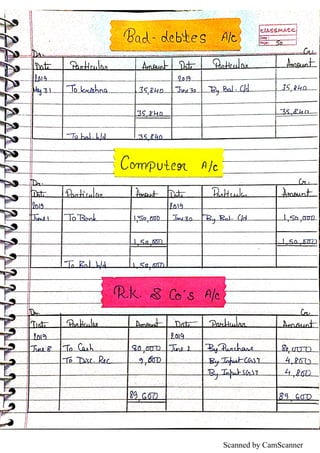 classmate
Date
Page 50
Bad-debtes A/c
Dr. Cr.
Date Particular Amount Date Particular Amount
2019 2019
May 31 To Krishna 35,840 June 30 By Bal. C/d 35,840
35,840 35,840
To bal b/d 35,840
Computer A/c
Dr. Cr.
Date Particular Amount Date Particular Amount
2019 2019
June 1 To Bank 1,50,000 June 30 By Bal. C/d 1,50,000
1,50,000 1,50,000
To Bal b/d 1,50,000
R.K. & Co's A/c
Dr. Cr.
Date Particular Amount Date Particular Amount
2019 2019
June 8 To Cash 80,000 June 2 By Purchase 80,000
To Disc. Rec 9,600 By Input CGST 4,800
By Input SGST 4,800
89,600 89,600
Scanned by CamScanner